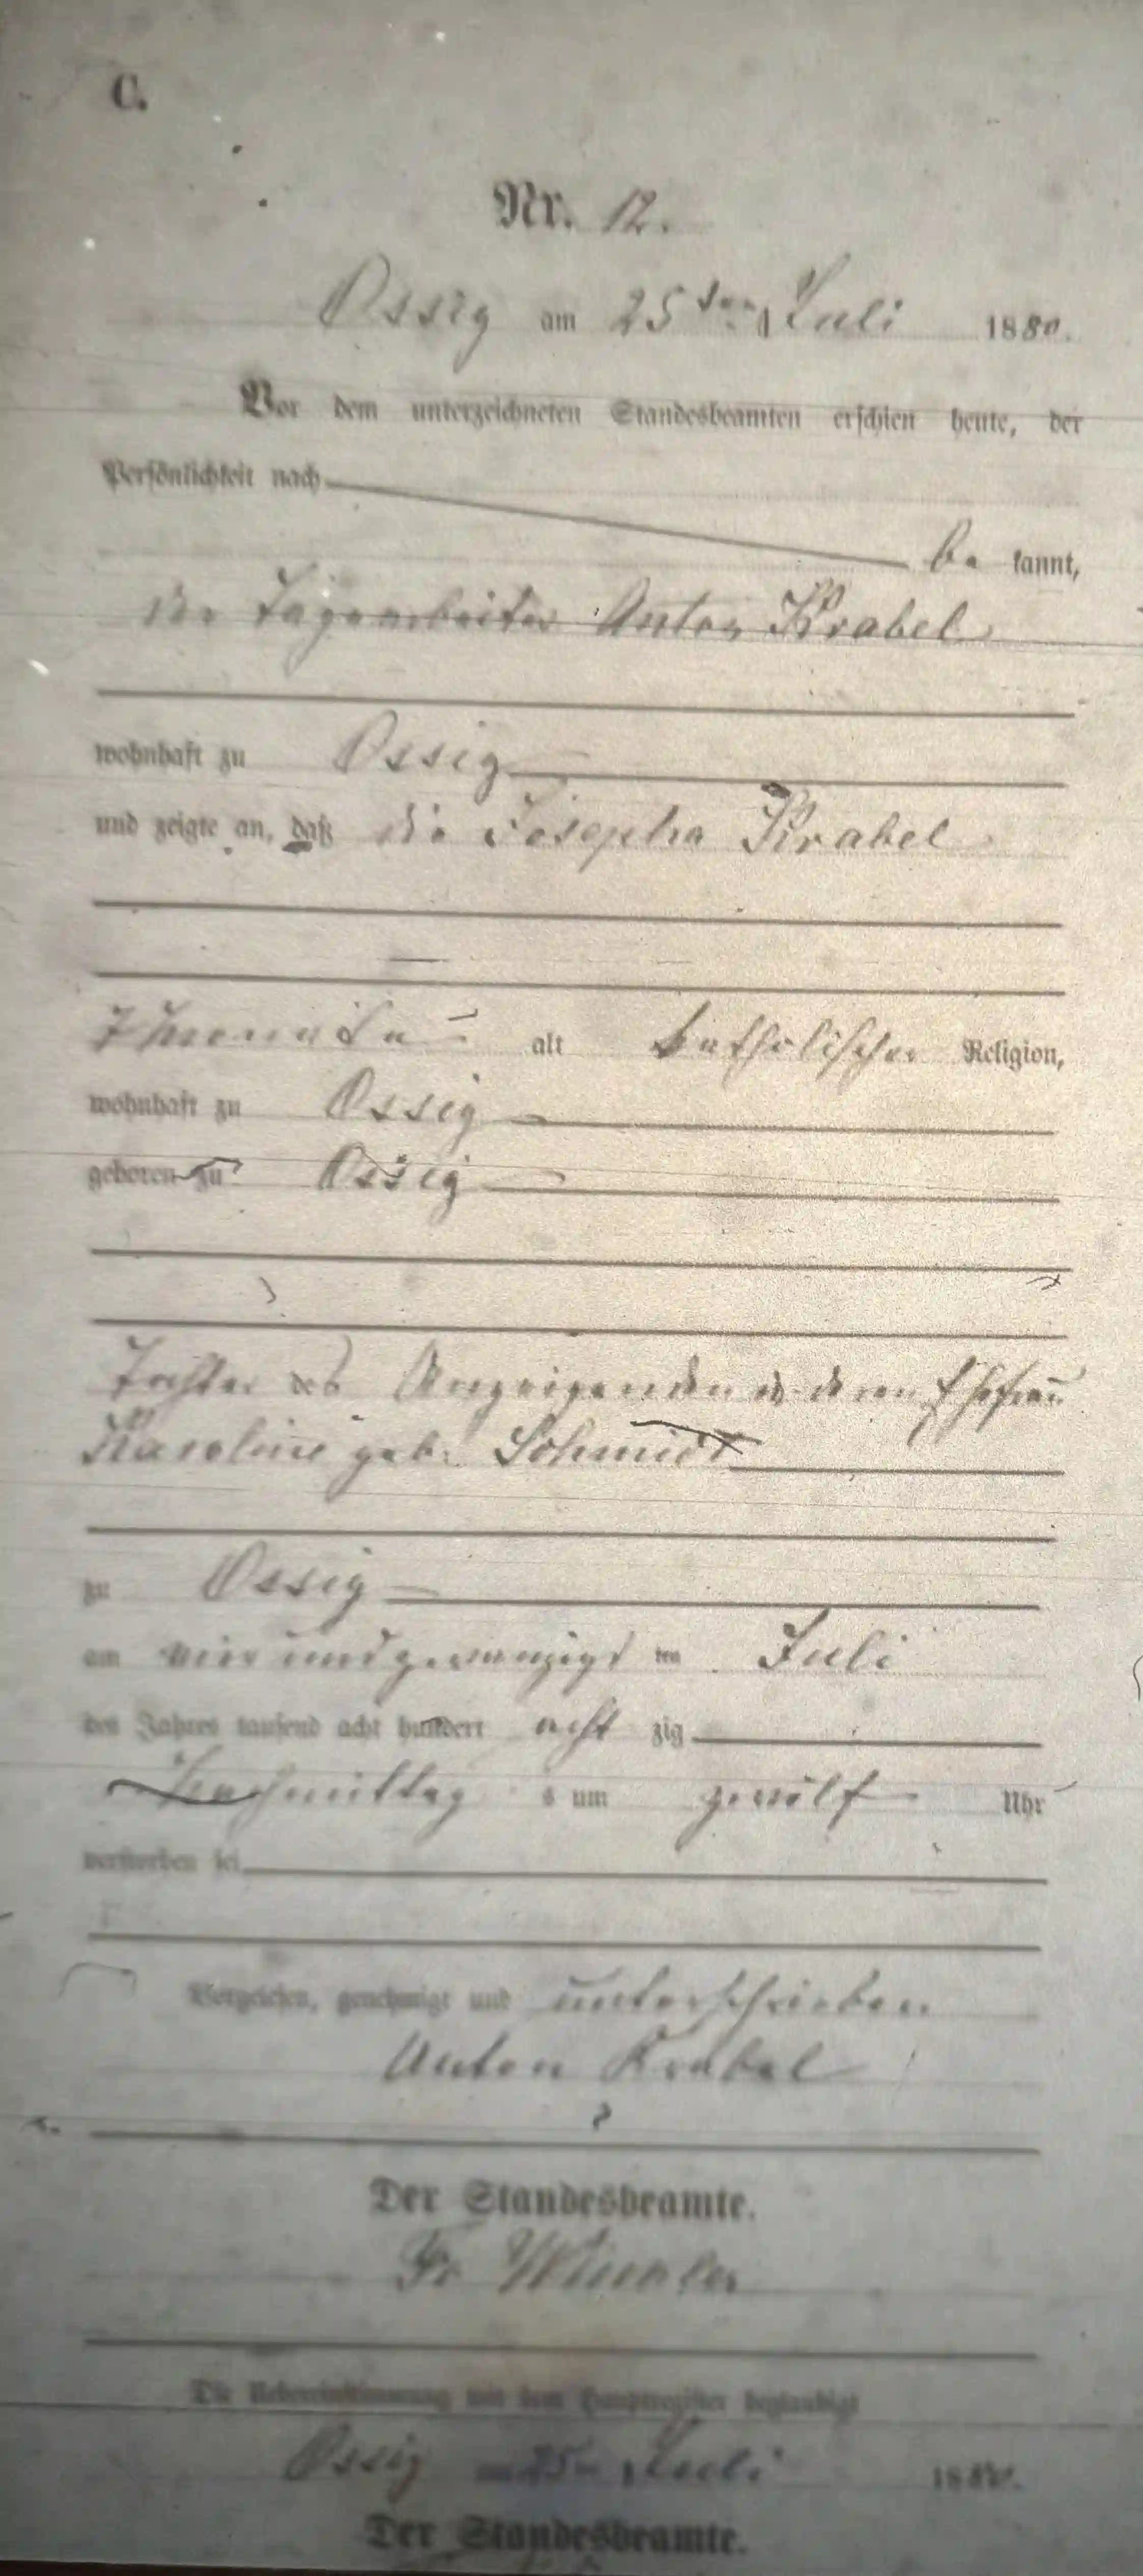 C.
Nr. 12.
Ossig am 25ten Juli 1880.
Vor dem unterzeichneten Standesbeamten erschien heute, der
Persönlichkeit nach
be kannt,
der Tagearbeiter Anton Krabel
wohnhaft zu Ossig
und zeigte an, daß die Josepha Krabel
7 Monate alt katholischer Religion,
wohnhaft zu Ossig
geboren zu Ossig
Tochter des Anzeigenden u. deren Ehefrau
Karoline geb. Schmidt
zu Ossig
am vier und zwanzigs ten Juli
des Jahres tausend acht hundert acht zig
Nachmittag s um zwölf Uhr
verstorben sei
Vorgelesen, genehmigt und unterschrieben
Anton Krabel
Der Standesbeamte.
Fr
Die Uebereinstimmung mit dem Hauptregister beglaubigt
Ossig am 25ten Juli 1880.
Der Standesbeamte.